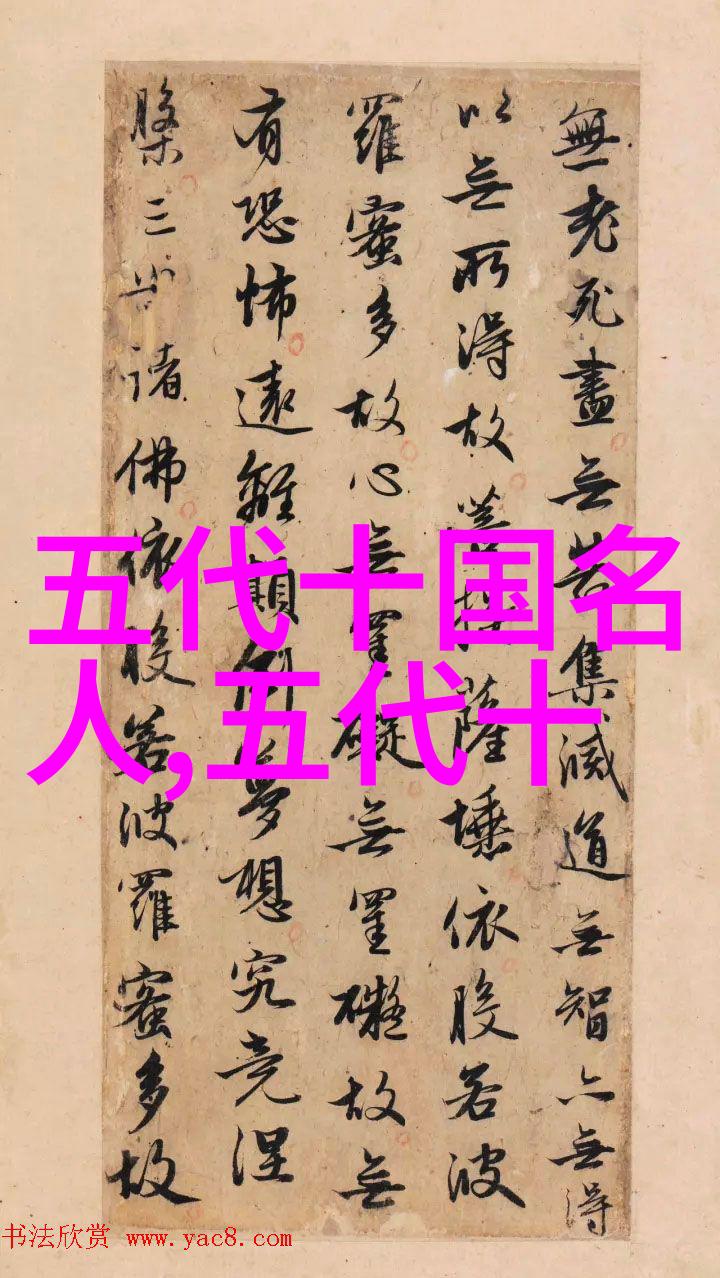 無老死盡无苦集滅道无智亦无得
以无所得故菩提薩埵依般若波
羅蜜多故心无罣礙无罣礙故无
有恐怖遠離顛倒夢想究竟涅
槃三世諸佛依般若波羅蜜多故
五代十国名
人,五代十
书法欣赏 www.yac8.com